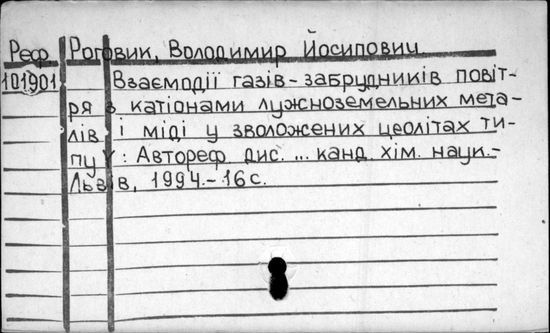 Реф. Роговик, Володимир Йосипович.
101901 Взаємодії газів-забрудників повіт-
ря з катіонами лужноземельних мета-
лів і міді у зволожених цеолітах ти-
пу Y: Автореф. дис. ... канд. хім. наук.-
Львів, 1994.-16с.